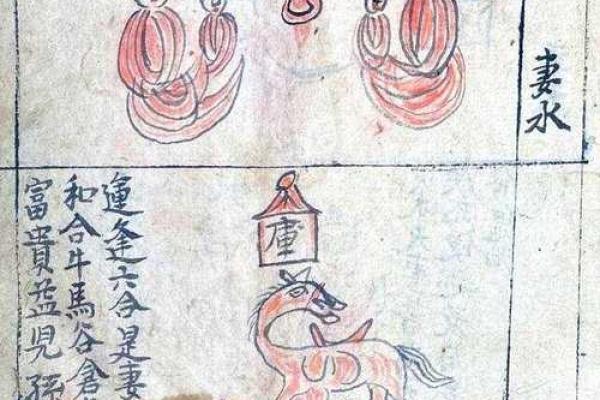 妻水
庫
運逢六合是妻
和合牛馬谷倉
富貴益児孫